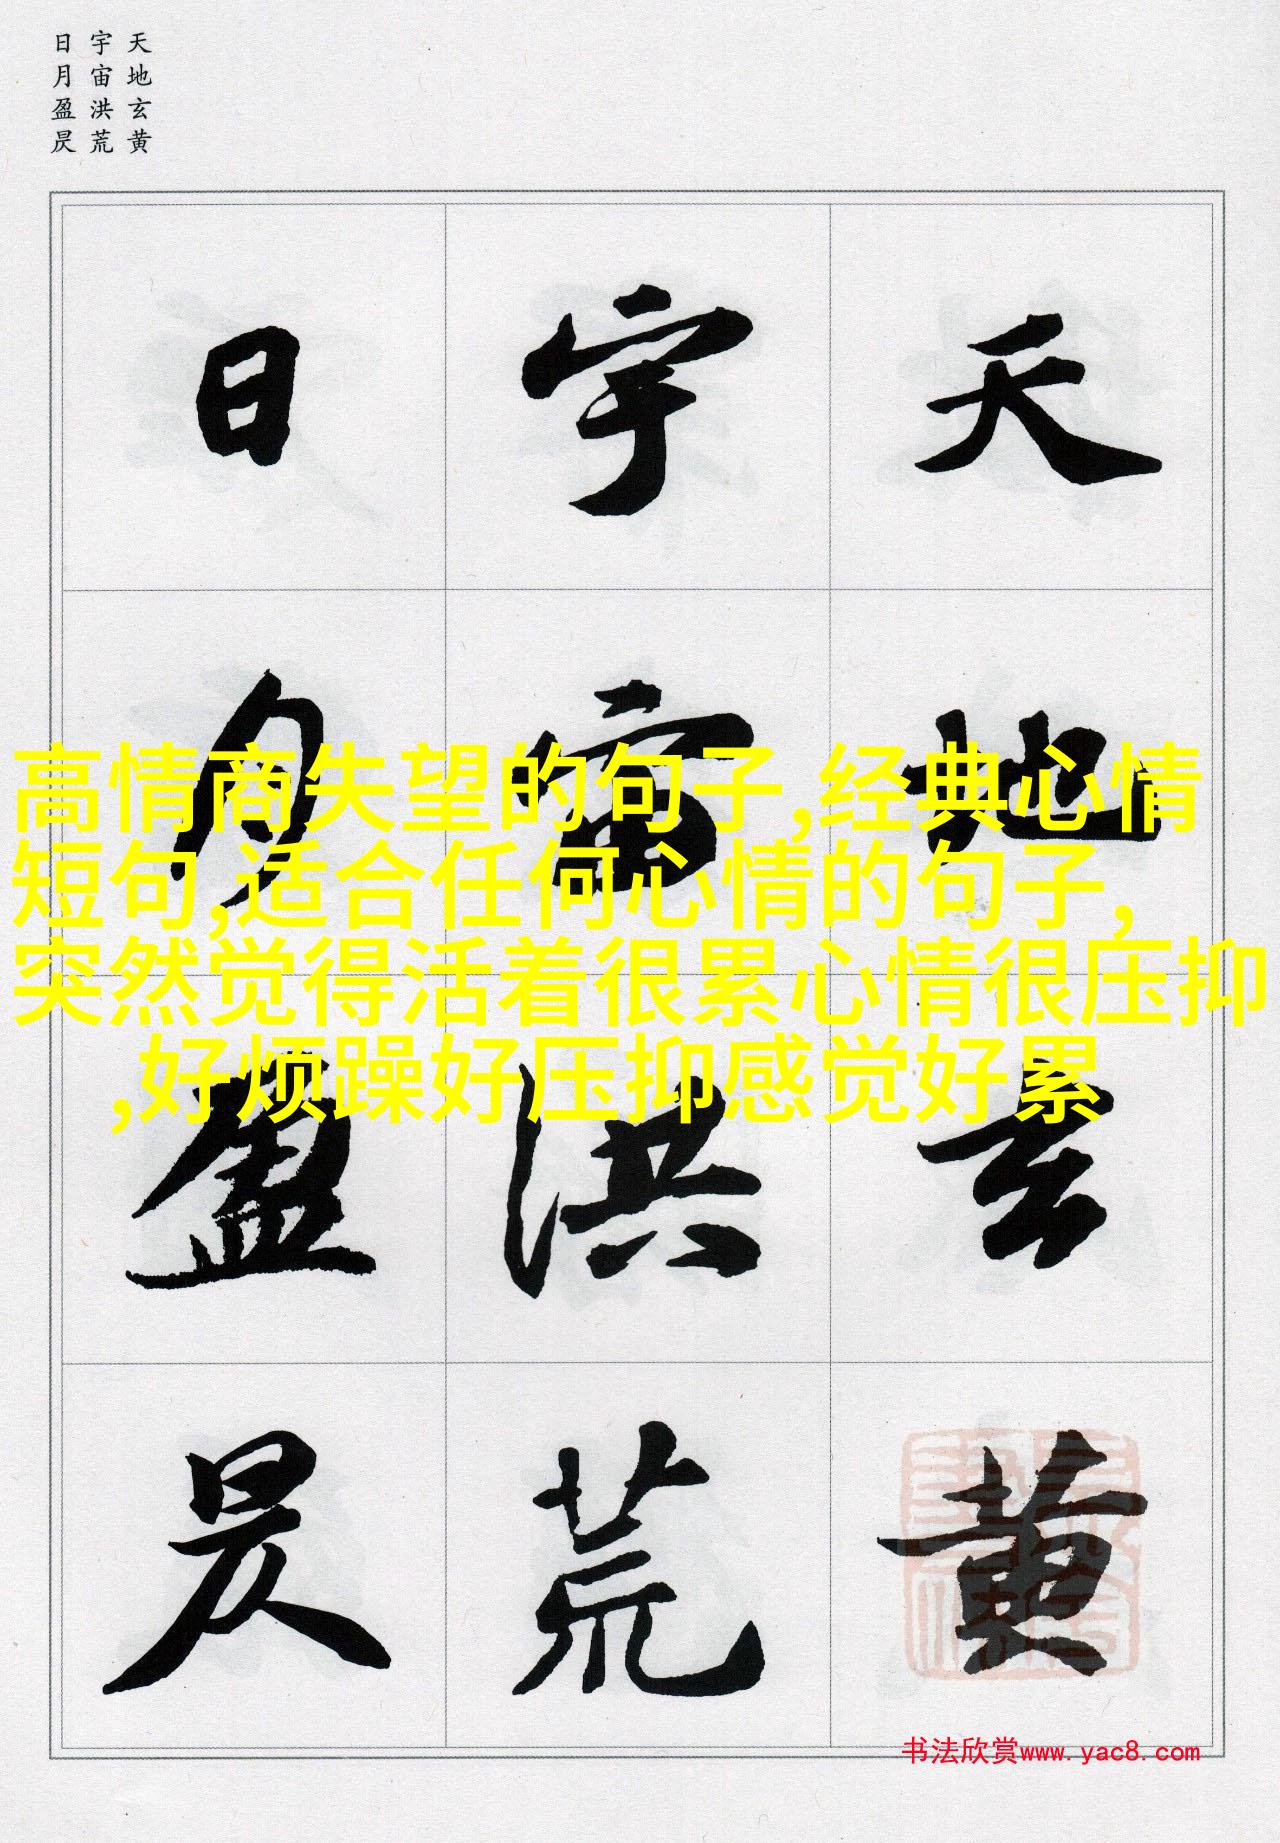 天地玄黄
宇宙洪荒
日月盈昃
天地玄黄
宇宙洪荒
日月盈昃
高情商失望的句子,经典心情
短句,适合任何心情的句子,
突然觉得活着很累心情很压抑
,好烦躁好压抑感觉好累
书法欣赏www.yac8.com